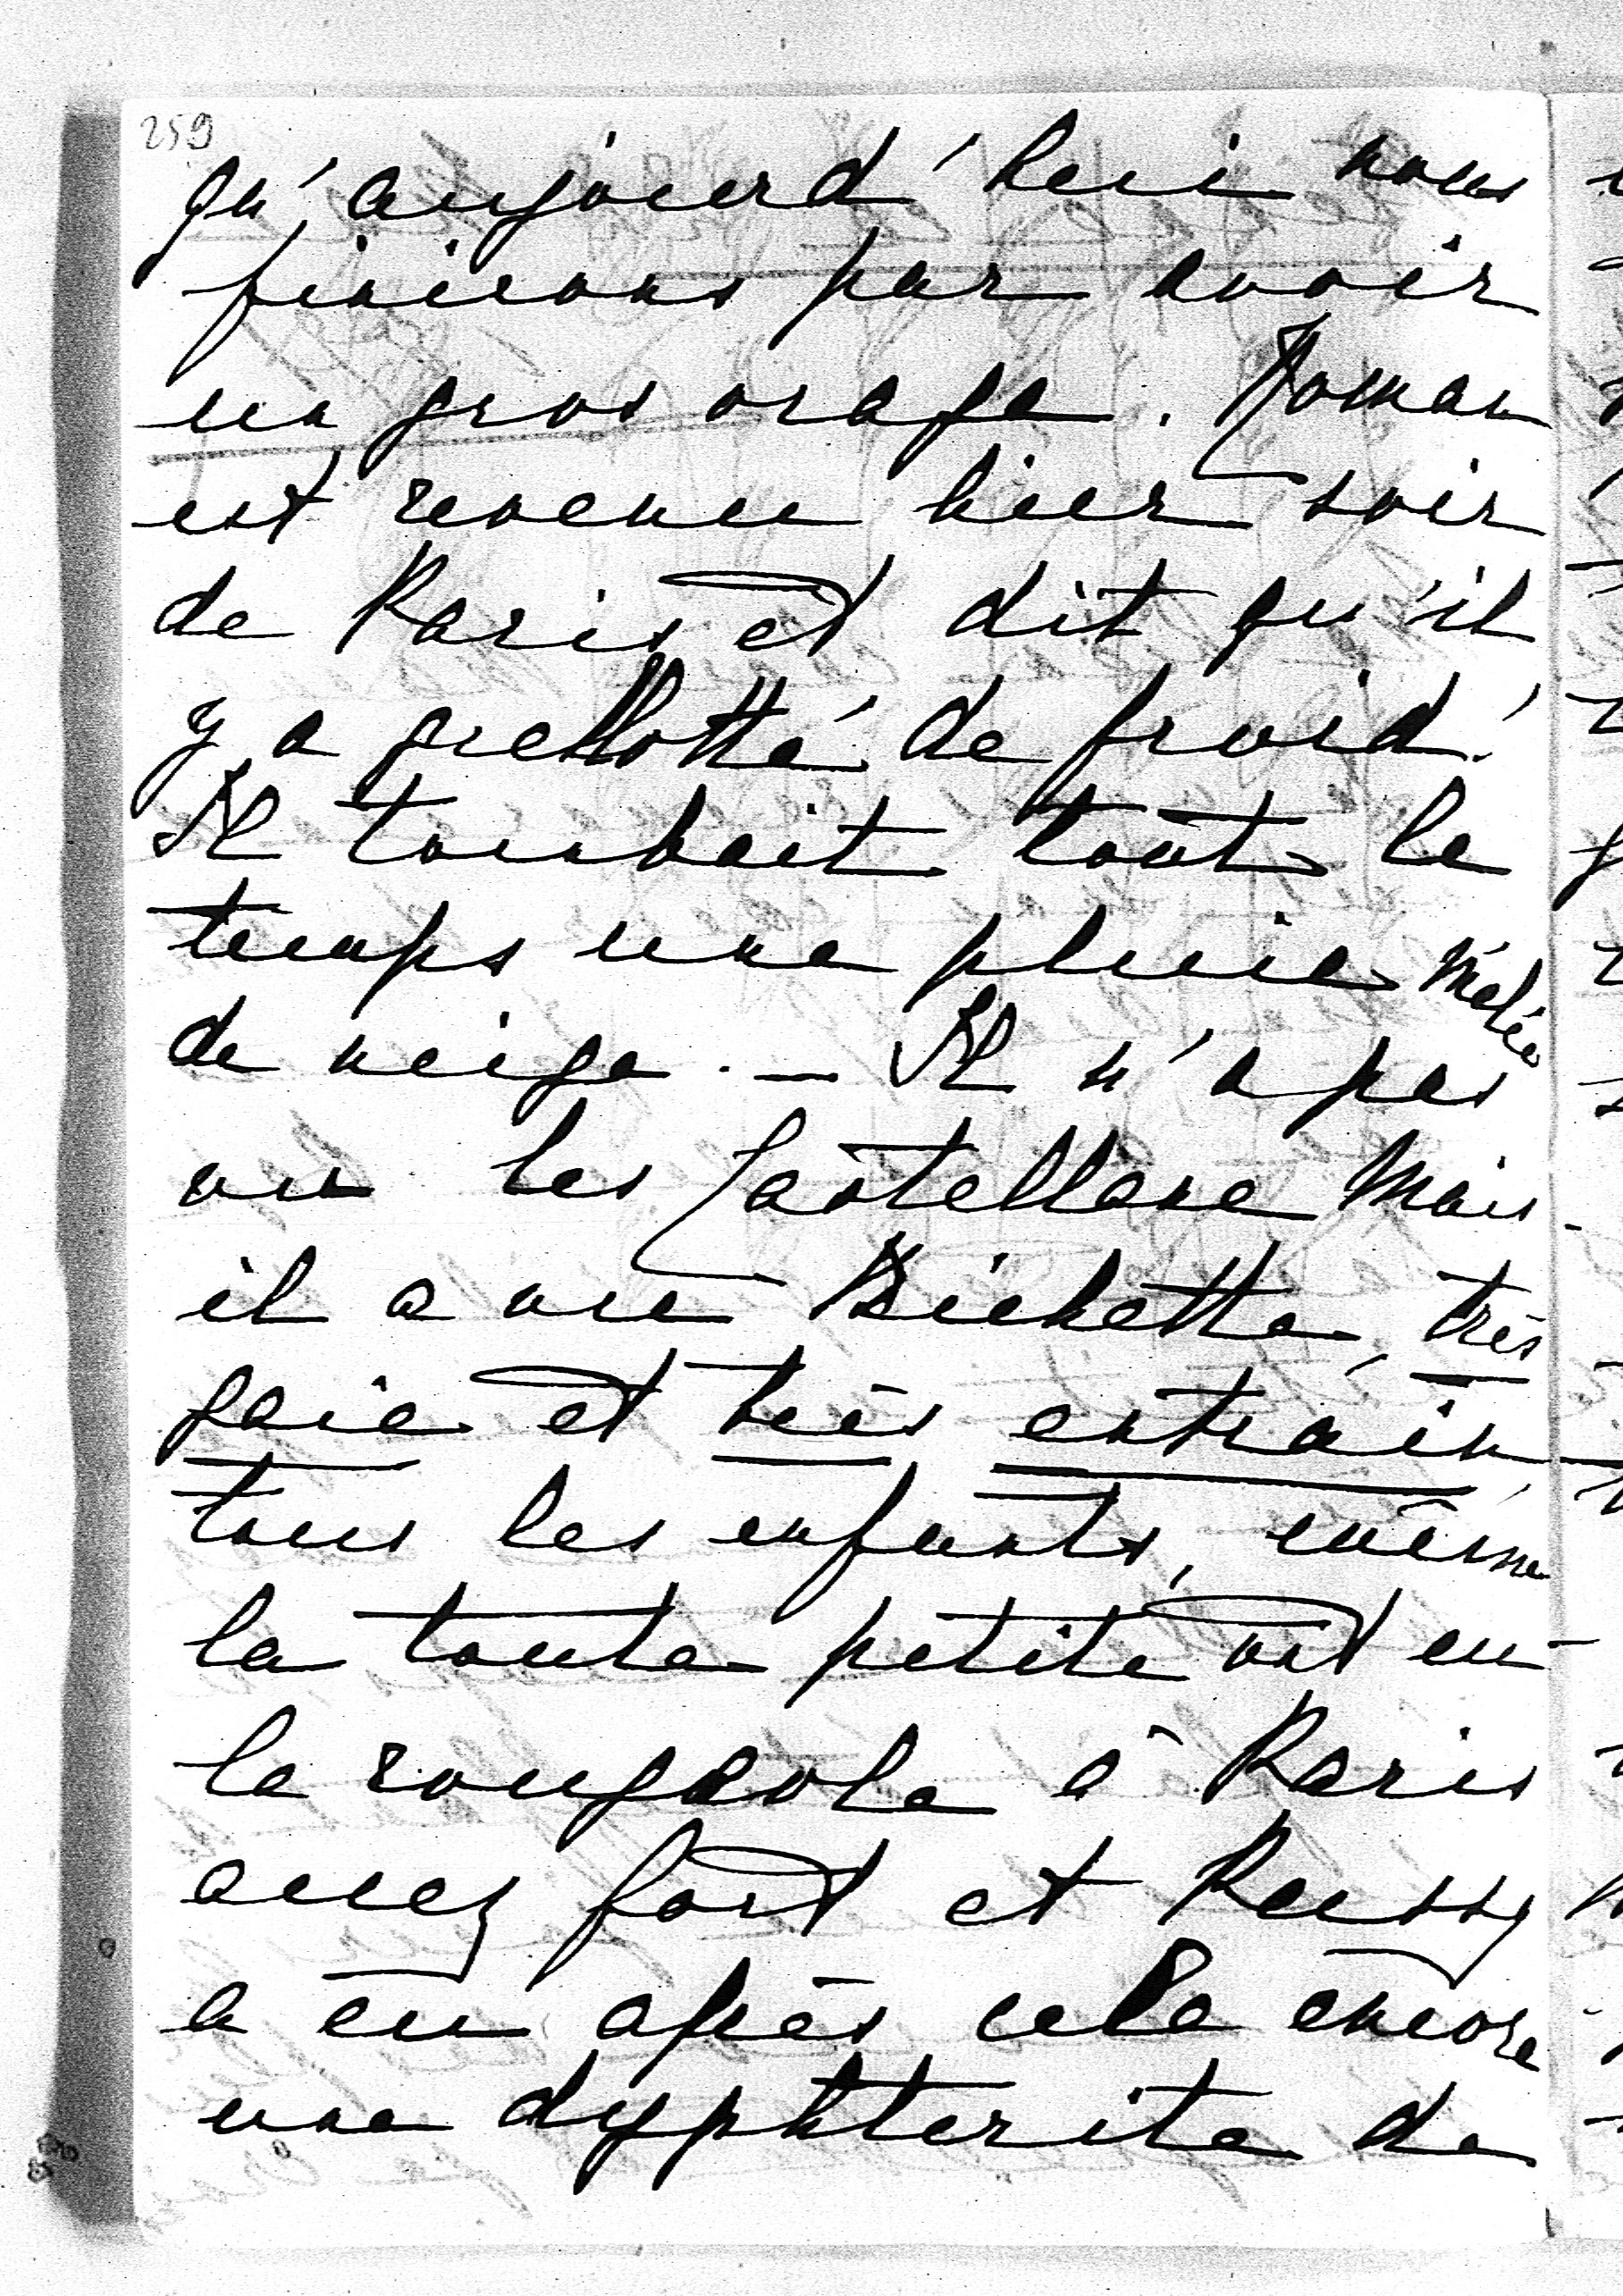 259
qu'aujourd'hui nous
finirons par avoir
un gros orage. Roman
est revenu hier soir
de Paris et dit qu'il
y a grellotté de froid!
Il tombait tout le
temps une pluie mêlée
de neige. — Il n'a pas
vu les Castellane mais
il a vu Bichette, très
gaie et très entrain,
tous les enfants, même
la toute petite ont eu
la rougeole à Paris
assez fort et
a eu après cela encore
une dyphterite de